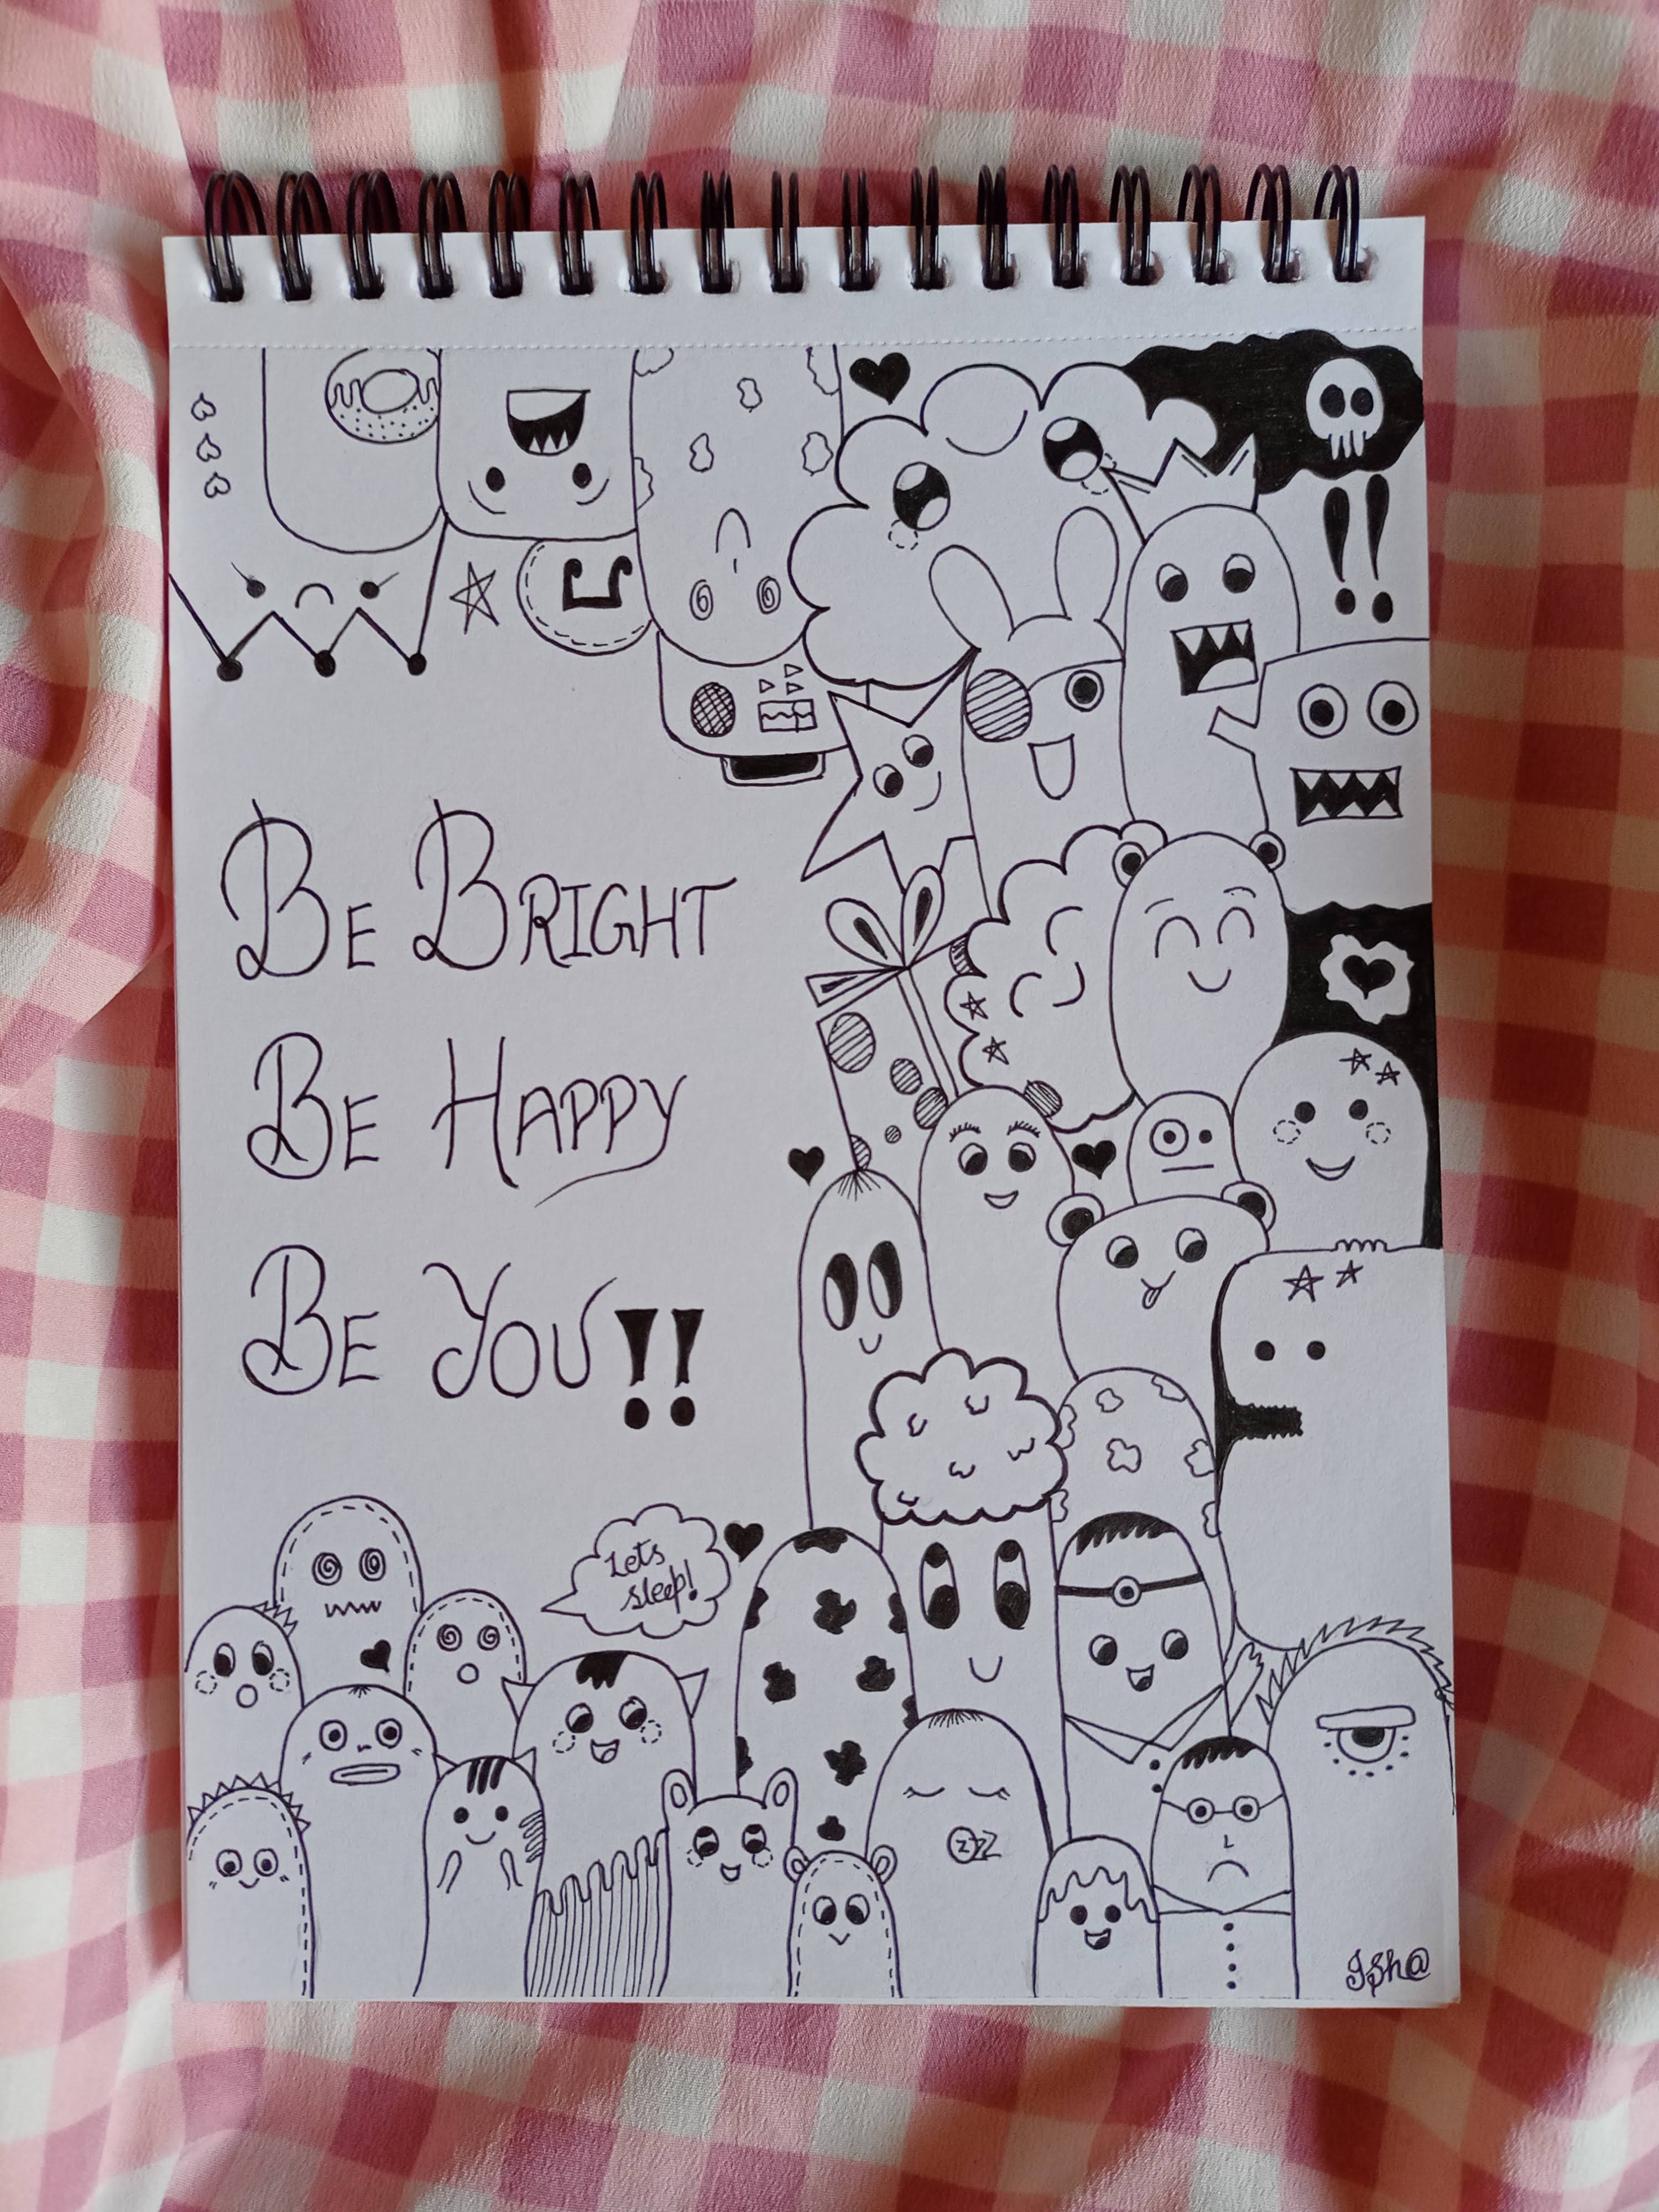 BE BRIGHT
BE HAPPY
BE YOU!!
Lets
sleep!
zzz
Ish@